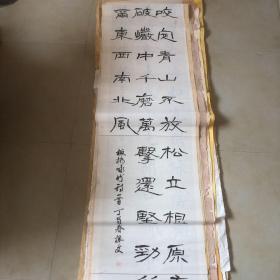 咬定青山不放松立根原
破巖中千磨萬擊還堅勁
爾東西南北風
板橋詠竹詩一首 丁酉春